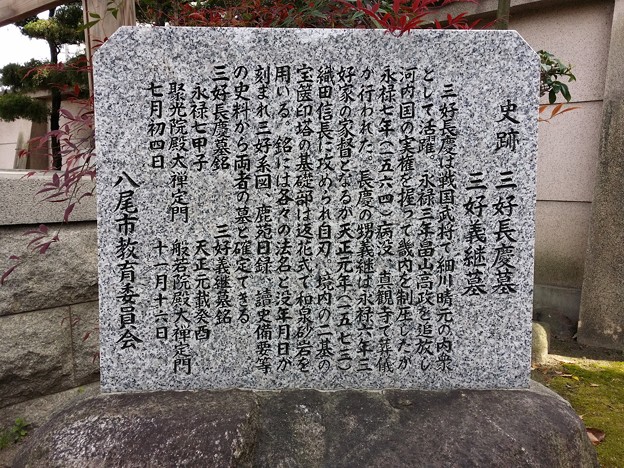 史跡 三好長慶墓
三好義継墓
三好長慶は戦国武将で細川晴元の内衆
として活躍。永禄三年畠山高政を追放し
河内国の実権を握って畿内を制圧したが
永禄七年(一五六四)病没、真観寺で葬儀
が行われた。長慶の甥義継は永禄六年三
好家の家督となるが天正元年(一五七三)
織田信長に攻められ自刃、境内の二基の
宝篋印塔の基礎部は返花式で和泉砂岩を
用いる。銘には各々の法名と没年月日が
刻まれ三好系図、鹿苑日録、讀史備要等
の史料から両者の墓と確定できる
三好長慶墓銘 三好義継墓銘
永禄七甲子 天正元載癸酉
聚光院殿大禅定門 般若院殿大禅定門
七月初四日 十一月十六日
八尾市教育委員会